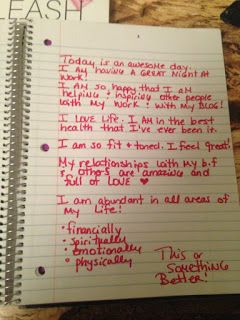 LEASH
Today is an awesome day.
I Am HAVING A GREAT NIGHT AT
WORK!
I AM so happy that I am
helping & inspiring other people
with my work & with my BLOG!
I LOVE life. I AM in the best
health that I've ever been it.
I am so fit + toned. I feel great!
My relationships with my b.f
& others are amazing and
full of LOVE ♥
I am abundant in all areas of
My Life!
• financially
• spiritually
• emotionally
• physically
This or
Something
Better!